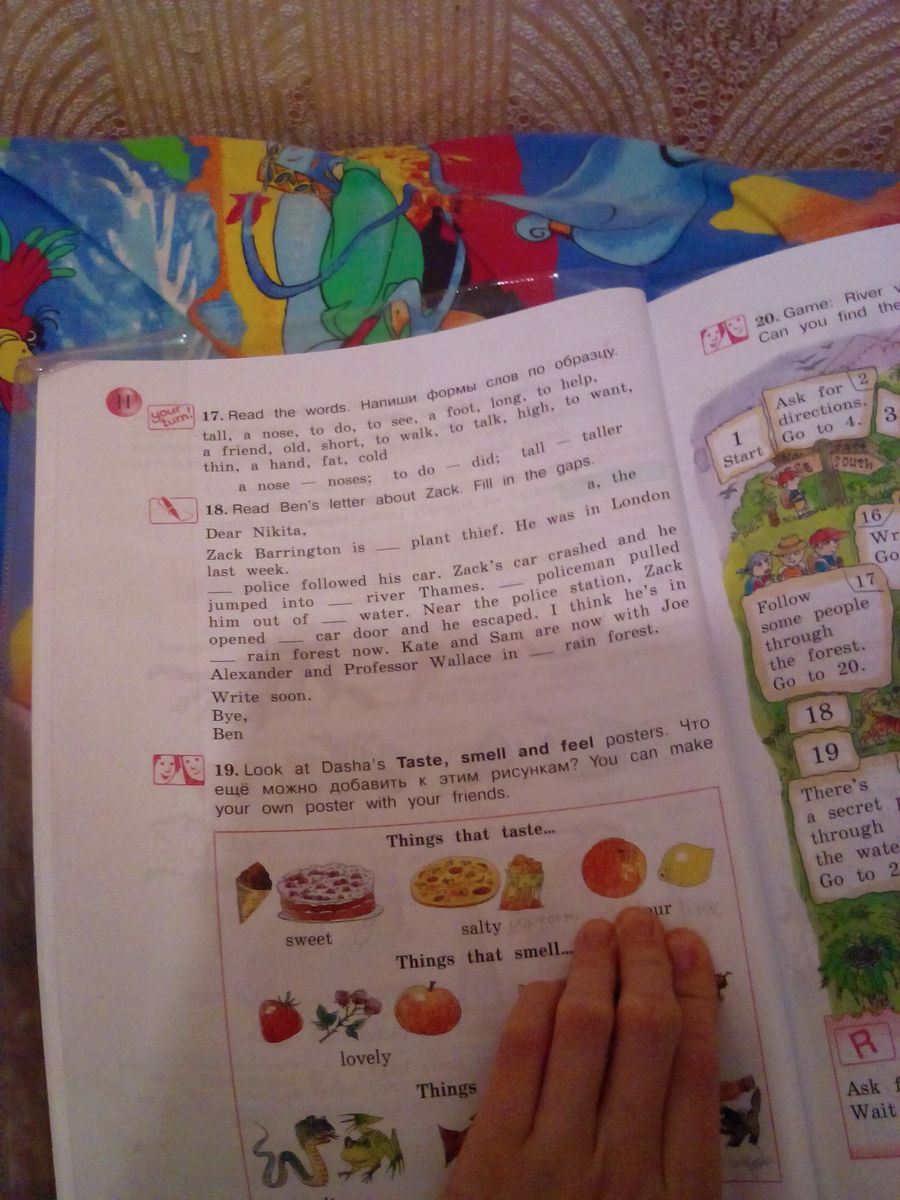 11
your turn!
17. Read the words. Напиши формы слов по образцу.
tall, a nose, to do, to see, a foot, long, to help,
a friend, old, short, to walk, to talk, high, to want,
thin, a hand, fat, cold
a nose — noses; to do — did; tall — taller
18. Read Ben's letter about Zack. Fill in the gaps.
a, the
Dear Nikita,
Zack Barrington is __ plant thief. He was in London
last week.
__ police followed his car. Zack's car crashed and he
jumped into __ river Thames. __ policeman pulled
him out of __ water. Near the police station, Zack
opened __ car door and he escaped. I think he's in
__ rain forest now. Kate and Sam are now with Joe
Alexander and Professor Wallace in __ rain forest.
Write soon.
Bye,
Ben
19. Look at Dasha's Taste, smell and feel posters. Что
ещё можно добавить к этим рисункам? You can make
your own poster with your friends.
Things that taste...
sweet
salty popcorn
our lime
Things that smell...
lovely
Things
20. Game: River
Can you find the
1
Start
2
Ask for
directions.
Go to 4.
3
EAST
SOUTH
16
Go
17
Follow
some people
through
the forest.
Go to 20.
18
19
There's
a secret
through
the
Go to
R
Ask
Wait